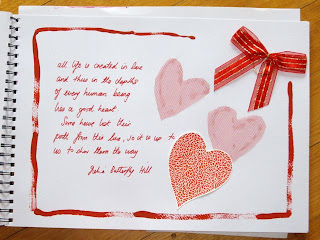 all life is created in love
and thus in the depths
of every human being
lies a good heart.
Some have lost their
path from this love, so it is up to
us to show them the way
Julia Butterfly Hill